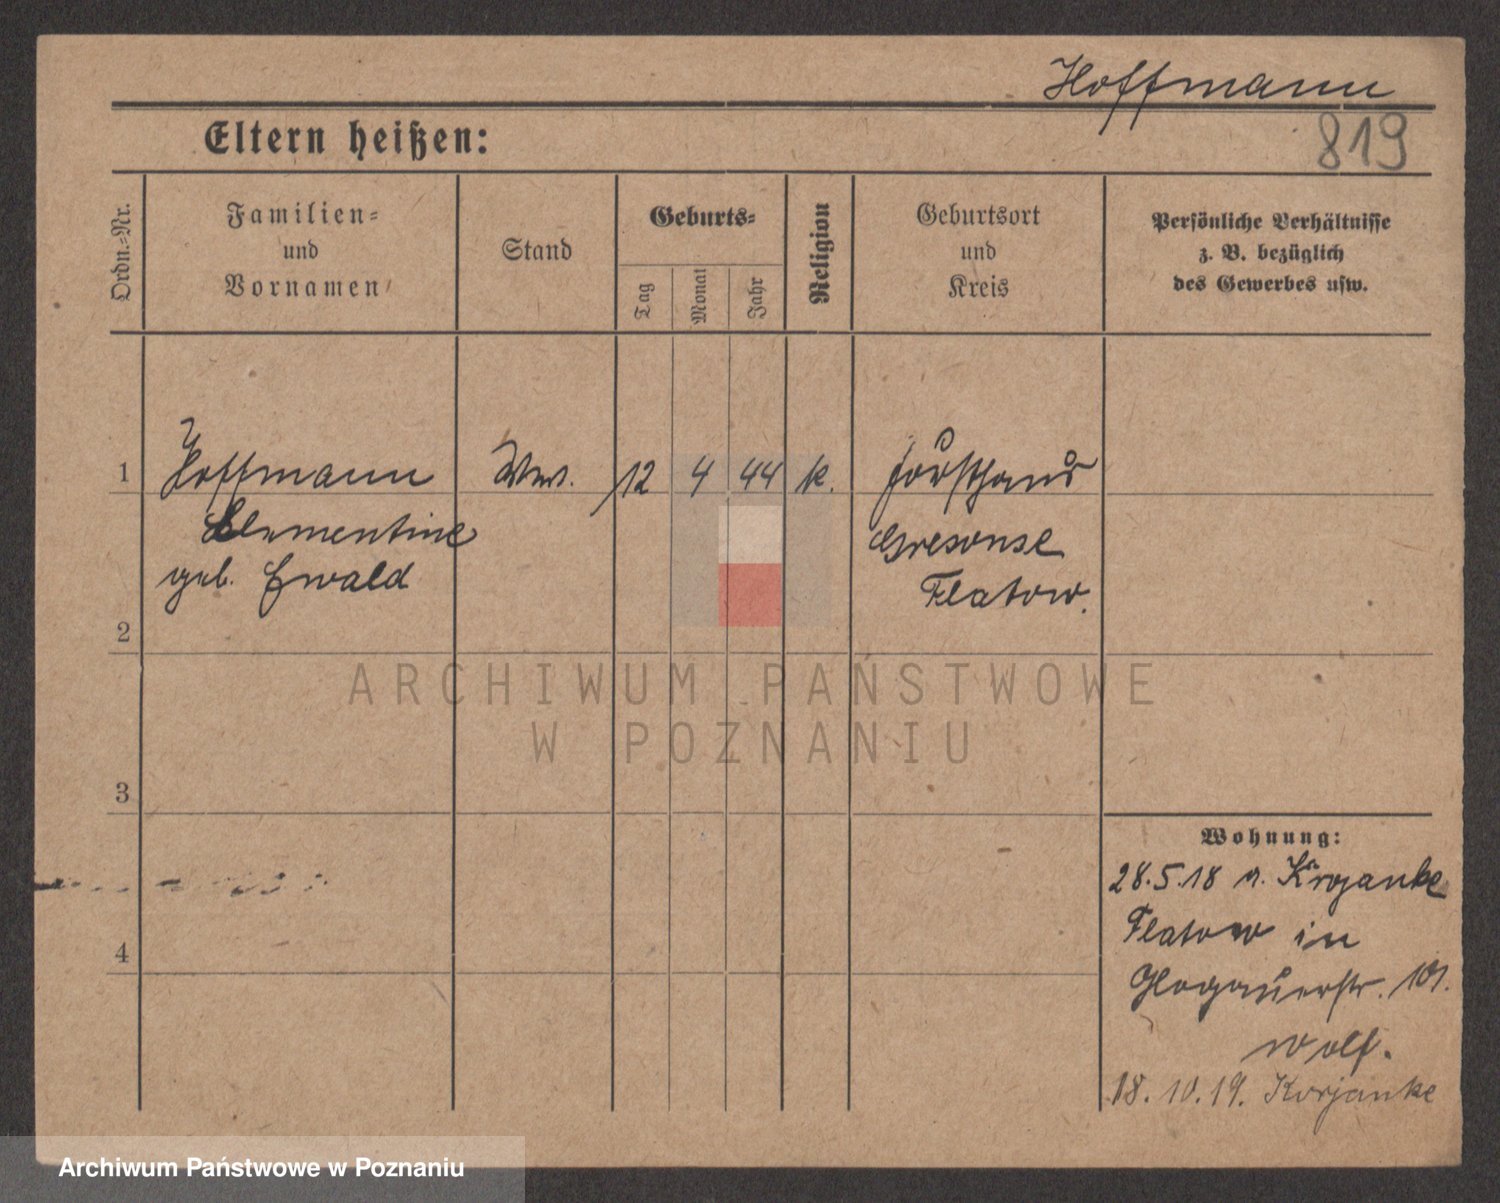 Hoffmann
819
Eltern heißen:
Ordn.-Nr.
Familien-
und
Vornamen
Stand
Geburts-
Tag
Monat
Jahr
Religion
Geburtsort
und
Kreis
Persönliche Verhältnisse
z. B. bezüglich
des Gewerbes usw.
1
Hoffmann
Clementine
geb. Ewald
Wwe.
12
4
44
k.
Forsthaus
Gresonse
Flatow.
2
3
4
Wohnung:
28.5.18 a. Krojanke
Flatow in
Glogauerstr. 101.
Wolf.
18.10.19. Korjanke
ARCHIWUM PAŃSTWOWE
W POZNANIU
Archiwum Państwowe w Poznaniu